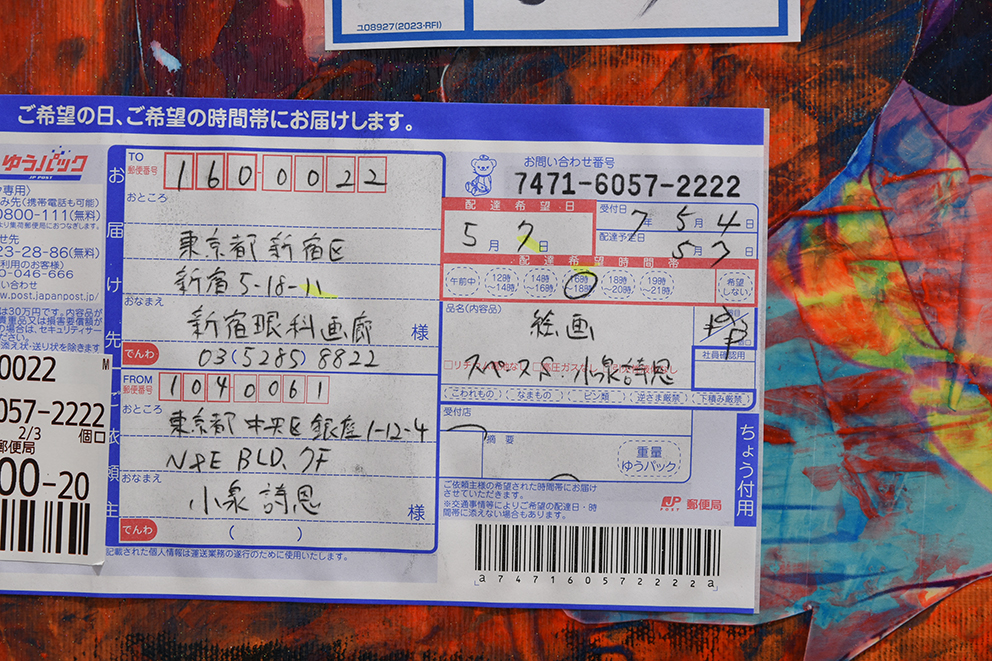 ユ08927(2023-RFI)
ご希望の日、ご希望の時間帯にお届けします。
ゆうパック
JP POST
専用)
み先(携帯電話も可能)
0800-111(無料)
より集荷郵便局におつなぎします。
せ先
23-28-86(無料)
利用のお客様)
0-046-666
w.post.japanpost.jp/
は30万円です。内容品が
0022
M
057-2222
2/3
個口
郵便局
00-20
お届け先
TO
郵便番号
160-0022
おところ
東京都新宿区
新宿5-18-11
おなまえ
新宿眼科画廊 様
でんわ
03(5285)8822
ご依頼主
FROM
郵便番号
1040061
おところ
東京都中央区銀座1-12-4
N&E BLD. 7F
おなまえ
小泉詩恩 様
でんわ
( )
記載された個人情報は運送業務の遂行のために使用いたします。
お問い合わせ番号
7471-6057-2222
配達希望日
5月7日
受付日
7年5月4日
配達予定日
5月7日
配達希望時間帯
午前中
12時~14時
14時~16時
16時~18時
18時~20時
19時~21時
希望しない
品名(内容品)
絵画
スペースS 小泉詩恩
社員確認用
こわれもの
なまもの
ビン類
逆さま厳禁
下積み厳禁
受付店
摘要
重量
ゆうパック
ちょう付用
ご依頼主様の希望された時間帯にお届け
させていただきます。
※交通事情等によりご希望の配達日・時
間帯に添えない場合もあります。
JP POST 郵便局
a747160572222a